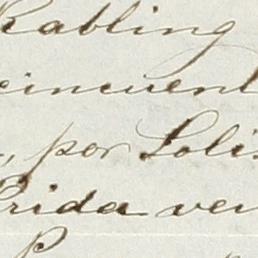 Rabling
cincuent
, por Solis
Prida vei
P